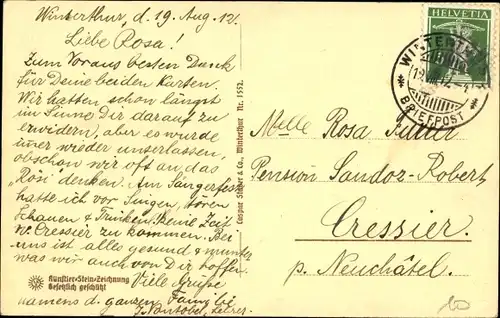 Winterthur, d. 19. Aug. 12.
Liebe Rosa!
Zum Voraus besten Dank
für Deine beiden Karten.
Wir hatten schon längst
im Sinne Dir darauf zu
erwidern, aber es wurde
imer wieder unserlassen,
obschon wir oft an das
"Rösi" denken. Am Sängerfest
hatte ich vor Singen, Hören
Schauen & Trinken keine Zeit
n. Cressier zu kommen. Bei
uns ist alles gesund & munter
was wir auch von Dir hoffen.
Viele Grüsse
namens d. ganzen Familie
J. Nantobel, Lehrer.
Künstler-Stein-Zeichnung
Gesetzlich geschützt
Caspar & Co., Winterthur Nr. 1552.
HELVETIA
WINTERTHUR
BRIEFPOST
Melle Rosa
Pension Sandoz-Robert
Cressier
p. Neuchâtel.